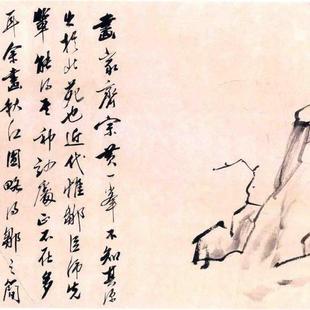 畫家齊宗黄一峯不知其源
出於北苑也近代惟鄒臣師先
輩能得其神妙處正不在多
耳余畫秋江圖略得鄒之簡